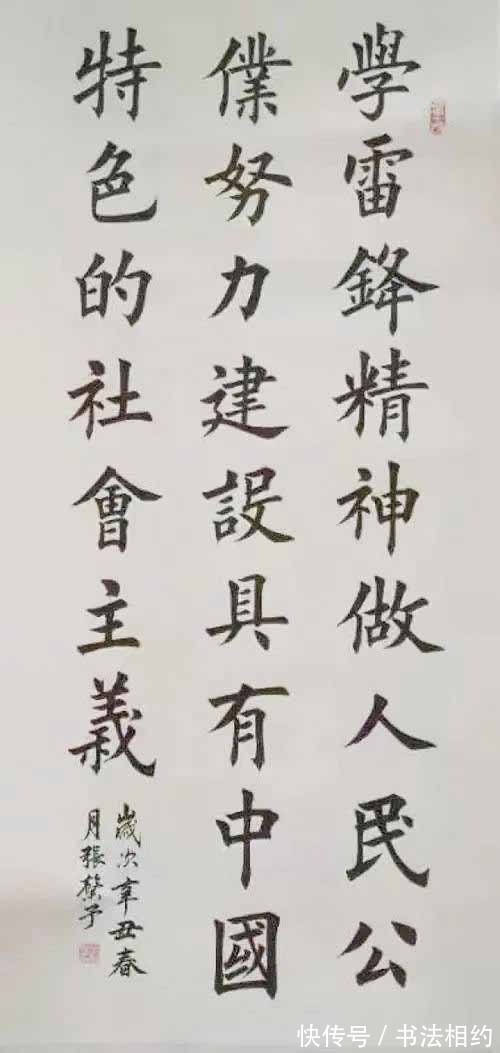 學雷鋒精神做人民公
僕努力建設具有中國
特色的社會主義
歲次辛丑春
月張馨予
快传号／书法相约